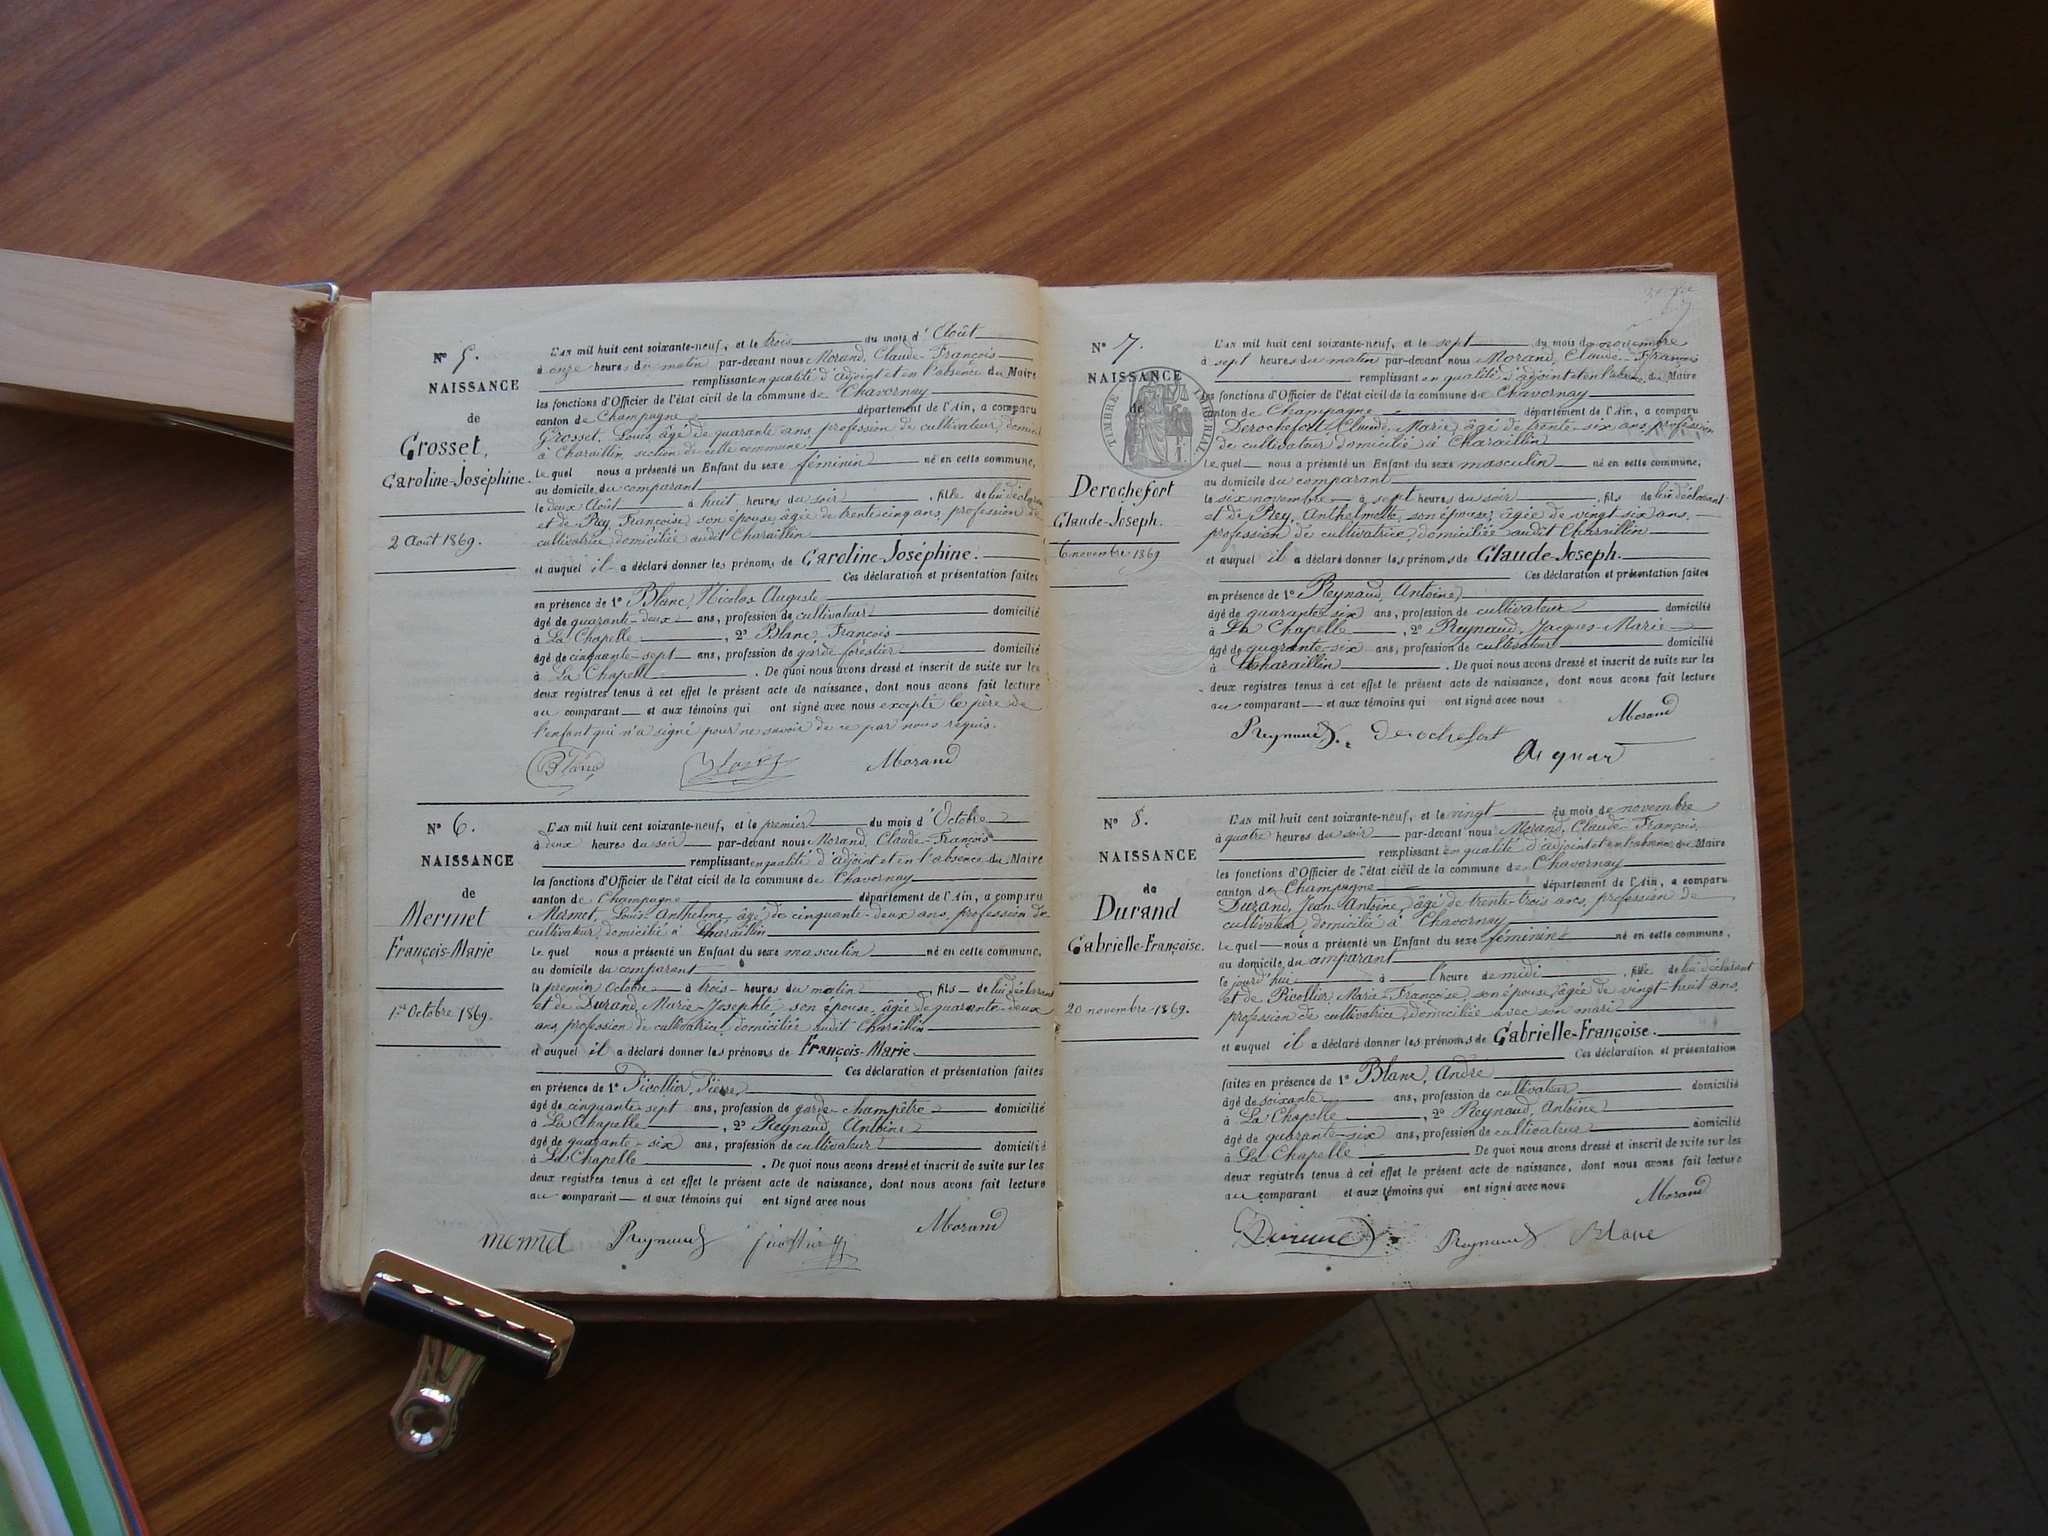 N° 5.
NAISSANCE
de
Grosset,
Caroline-Joséphine.
2 Août 1869.
L'AN mil huit cent soixante-neuf, et le trois du mois d'Août
à onze heures du matin par-devant nous Morand, Claude-François
remplissant en qualité d'adjoint et en l'absence du Maire
les fonctions d'Officier de l'état civil de la commune de Chavornay
canton de Champagne département de l'Ain, a comparu
Grosset, Louis, âgé de quarante ans, profession de cultivateur, domicilié
à Charaillin, section de cette commune
Le quel nous a présenté un Enfant du sexe féminin né en cette commune,
au domicile du comparant
le deux Août à huit heures du soir, fille de lui déclarant
et de Rey, Françoise, son épouse, âgée de trente cinq ans, profession de
cultivatrice, domiciliée audit Charaillin
et auquel il a déclaré donner les prénoms de Caroline-Joséphine.
Ces déclaration et présentation faites
en présence de 1° Blanc, Nicolas Auguste
âgé de quarante-deux ans, profession de cultivateur domicilié
à La Chapelle, 2° Blanc, François
âgé de cinquante-sept ans, profession de garde forestier domicilié
à La Chapelle. De quoi nous avons dressé et inscrit de suite sur les
deux registres tenus à cet effet le présent acte de naissance, dont nous avons fait lecture
au comparant et aux témoins qui ont signé avec nous excepté le père de
l'enfant qui n'a signé pour ne savoir de ce par nous requis.
Blanc Morand
N° 6.
NAISSANCE
de
Mermet
François-Marie
1er Octobre 1869.
L'AN mil huit cent soixante-neuf, et le premier du mois d'Octobre
à deux heures du soir par-devant nous Morand, Claude-François
remplissant en qualité d'adjoint et en l'absence du Maire
les fonctions d'Officier de l'état civil de la commune de Chavornay
canton de Champagne département de l'Ain, a comparu
Mermet, Louis Anthelme, âgé de cinquante-deux ans, profession de
cultivateur, domicilié à Charaillin
Le quel nous a présenté un Enfant du sexe masculin né en cette commune,
au domicile du comparant
le premier Octobre à trois heures du matin, fils de lui déclarant
et de Durand, Marie-Josephte, son épouse, âgée de quarante-deux
ans, profession de cultivatrice, domiciliée audit Charaillin
et auquel il a déclaré donner les prénoms de François-Marie.
Ces déclaration et présentation faites
en présence de 1° Picollier, Pierre
âgé de cinquante-sept ans, profession de garde-champêtre domicilié
à La Chapelle, 2° Reynaud, Antoine
âgé de quarante-six ans, profession de cultivateur domicilié
à La Chapelle. De quoi nous avons dressé et inscrit de suite sur les
deux registres tenus à cet effet le présent acte de naissance, dont nous avons fait lecture
au comparant et aux témoins qui ont signé avec nous
mermet Reynaud Morand
N° 7.
NAISSANCE
de
TIMBRE IMPÉRIAL
Derochefort
Claude-Joseph.
6 novembre 1869
L'AN mil huit cent soixante-neuf, et le sept du mois de novembre
à sept heures du matin par-devant nous Morand, Claude-François
remplissant en qualité d'adjoint et en l'absence du Maire
les fonctions d'Officier de l'état civil de la commune de Chavornay
canton de Champagne département de l'Ain, a comparu
Derochefort, Claude-Marie, âgé de trente-six ans, profession
de cultivateur domicilié à Charaillin
Le quel nous a présenté un Enfant du sexe masculin né en cette commune,
au domicile du comparant
le six novembre à sept heures du soir, fils de lui déclarant
et de Rey, Anthelmette, son épouse, âgée de vingt six ans,
profession de cultivatrice, domiciliée audit Charaillin
et auquel il a déclaré donner les prénoms de Claude-Joseph.
Ces déclaration et présentation faites
en présence de 1° Reynaud, Antoine
âgé de quarante six ans, profession de cultivateur domicilié
à La Chapelle, 2° Reynaud, Jacques-Marie
âgé de quarante-six ans, profession de cultivateur domicilié
à Charaillin. De quoi nous avons dressé et inscrit de suite sur les
deux registres tenus à cet effet le présent acte de naissance, dont nous avons fait lecture
au comparant et aux témoins qui ont signé avec nous
Morand
Reynaud derochefort
N° 8.
NAISSANCE
de
Durand
Gabrielle-Françoise.
20 novembre 1869.
L'AN mil huit cent soixante-neuf, et le vingt du mois de novembre
à quatre heures du soir par-devant nous Morand, Claude-François,
remplissant en qualité d'adjoint et en l'absence du Maire
les fonctions d'Officier de l'état civil de la commune de Chavornay
canton de Champagne département de l'Ain, a comparu
Durand, Jean-Antoine, âgé de trente-trois ans, profession de
cultivateur, domicilié à Chavornay
Le quel nous a présenté un Enfant du sexe féminin né en cette commune,
au domicile du comparant
le jourd'hui à l'heure de midi, fille de lui déclarant
et de Picollier, Marie-Françoise, son épouse, âgée de vingt-huit ans,
profession de cultivatrice, domiciliée avec son mari
et auquel il a déclaré donner les prénoms de Gabrielle-Françoise.
Ces déclaration et présentation
faites en présence de 1° Blanc, André
âgé de soixante ans, profession de cultivateur domicilié
à La Chapelle, 2° Reynaud, Antoine
âgé de quarante-six ans, profession de cultivateur domicilié
à La Chapelle De quoi nous avons dressé et inscrit de suite sur les
deux registres tenus à cet effet le présent acte de naissance, dont nous avons fait lecture
au comparant et aux témoins qui ont signé avec nous
Morand
Durand Reynaud Blanc